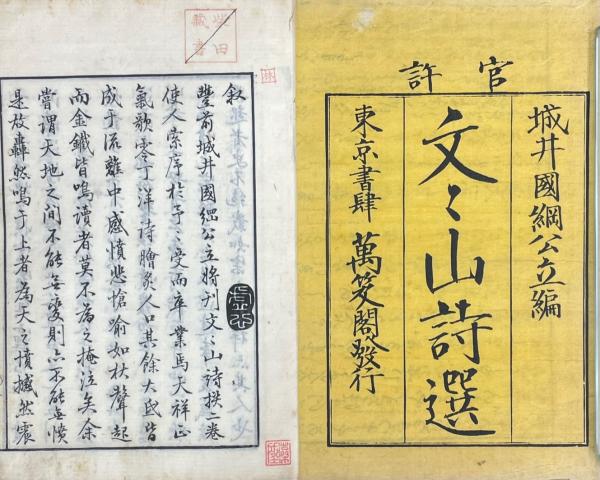 官許
城井國綱公立編
文〻山詩選
東京書肆 萬笈閣發行
叙
豐前城井國綱公立將刊文〻山詩撰二卷
使人索序於予〻受而卒業焉天祥正
氣歌零丁洋詩膾炙人口其餘大氐皆
成于流離中感憤悲愴喻如杖聲起
而金鐵皆鳴讀者莫不為之掩泣矣余
嘗謂天地之間不能無變則亦不能無憤
是故轟然鳴于上者為天之憤撼然震
柴田
藏書